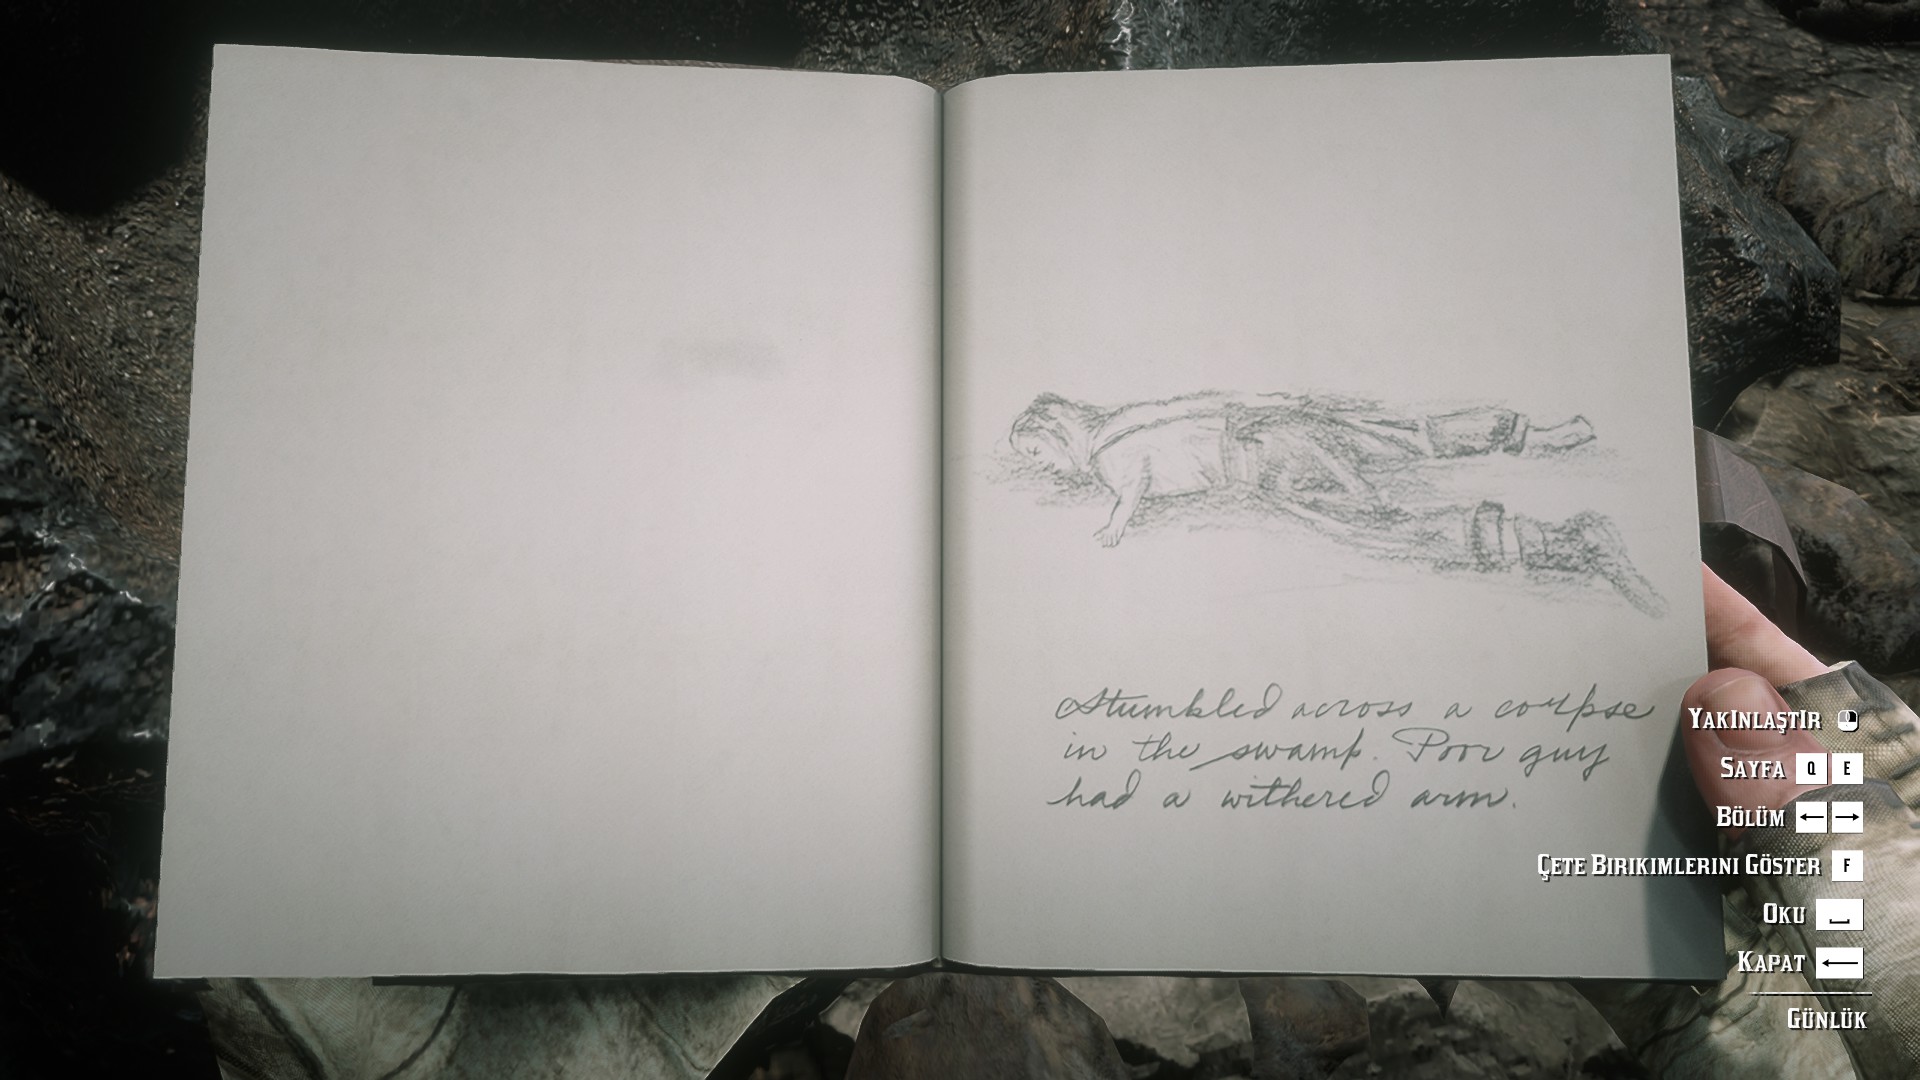 Stumbled across a corpse
in the swamp. Poor guy
had a withered arm.
YAKINLAŞTIR
SAYFA Q E
BÖLÜM ← →
ÇETE BIRIKIMLERINI GÖSTER F
OKU
KAPAT ←
GÜNLÜK